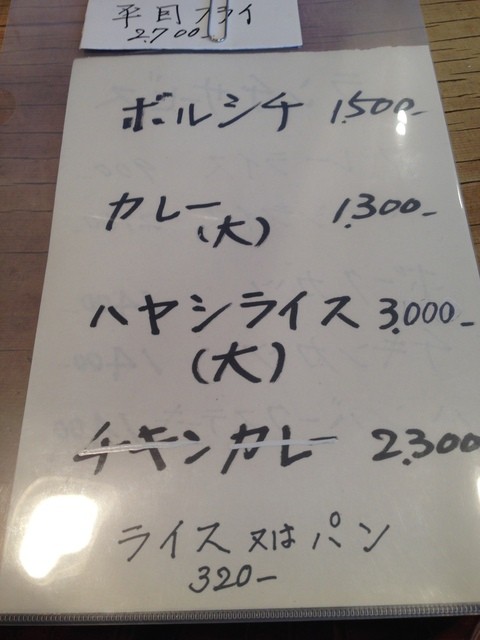 平目フライ
2.700-
ボルシチ 1.500-
カレー 1.300-
(大)
ハヤシライス 3.000-
(大)
チキンカレー 2.300
ライス又はパン
320-